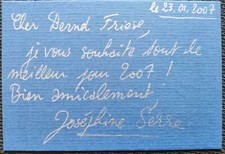 le 23.01.2007
Cher Bernd Friase,
je vous souhaite tout le
meilleur pour 2007 !
Bien amicalement,
Joséphine Serre